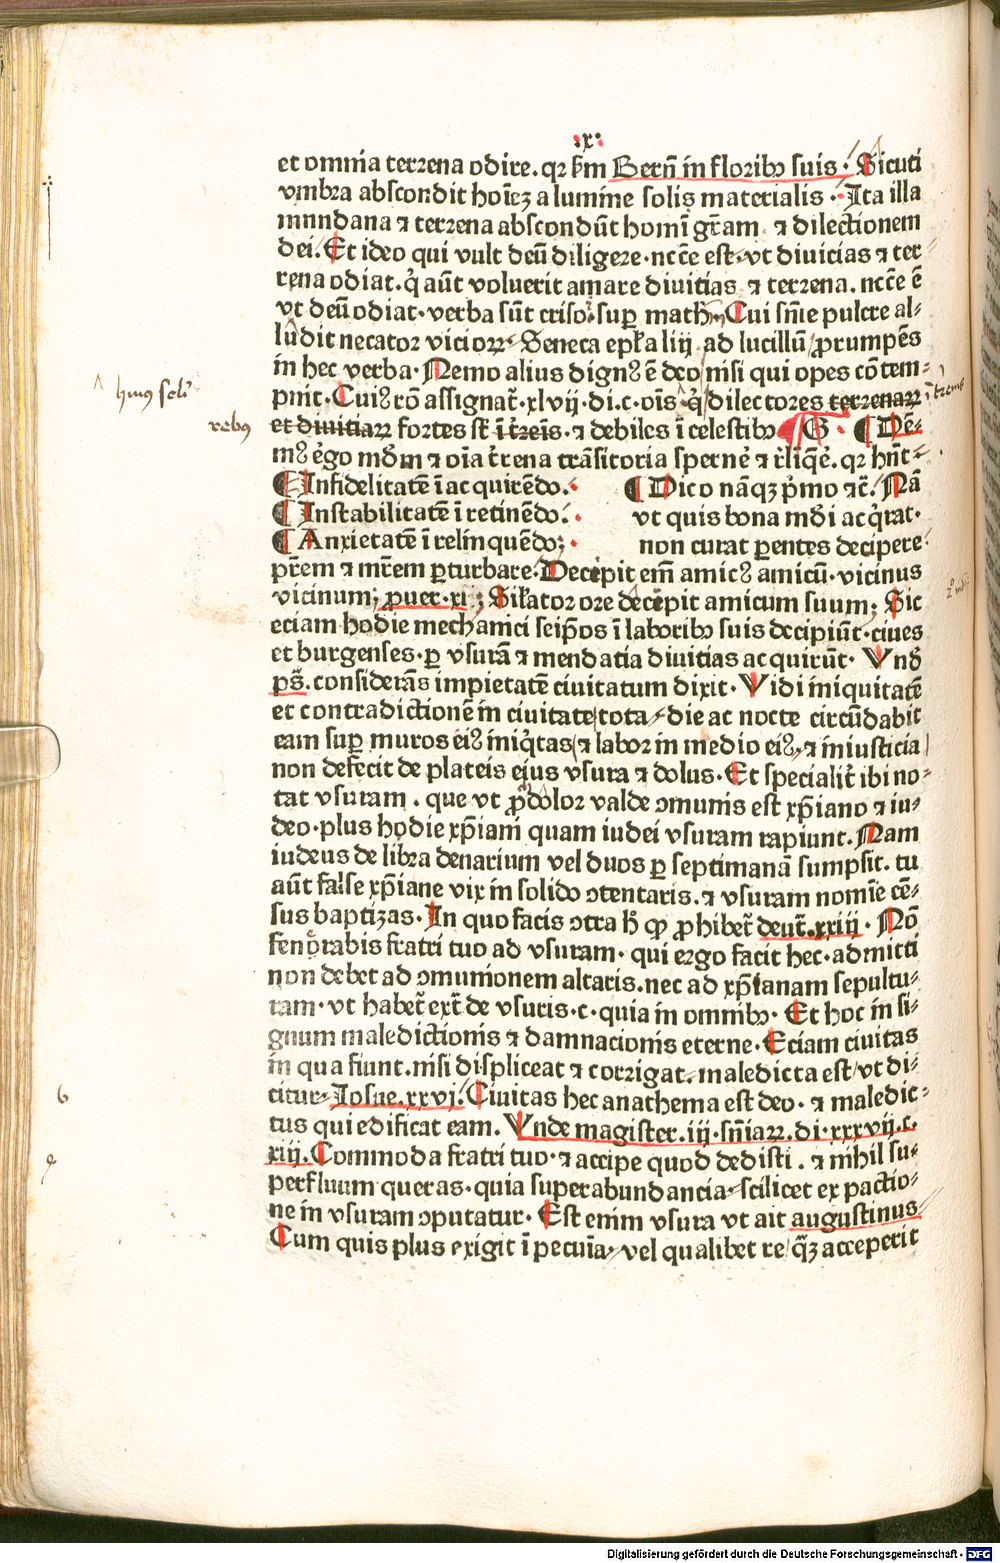 :x:
et omnia terrena odire. qr s̄m Berñ in floribꝰ suis · Sicuti
vmbra abscondit hoīeꝫ a lumine solis materialis · Ita illa
mundana ⁊ terrena abscondūt homī gr̄am ⁊ dilectionem
dei. Et ideo qui vult deū diligere · nc̄ce est · vt diuicias ⁊ ter⸗
rena odiat. q̇ aūt voluerit amare diuitias ⁊ terrena. nc̄ce ē
vt deū odiat · verba sūt criso · suꝑ math̄ Cui sn̄ie pulcre al⸗
ludit necator vicioꝝ · Seneca ep̄ła liij ad lucillū ꝓrumpēs
in hec verba · Nemo alius dignꝰ ē deo nisi qui opes cōtem⸗
pnit. Cuiꝰ rō assignat̄ · xlvij · di · c · oīs · q̇ dilectores terrenaꝝ
et diuitiaꝝ fortes st̄ ī tr̄eis · ⁊ debiles ī celestibꝰ G · Dē⸗
mꝰ ēgo md̄m ⁊ oīa tr̄rena trāsitoria sperne᷑ ⁊ r̄liq̄e᷑. qr hn̄t
Infidelitatē ī acquirēdo.
Instabilitatē ī retinēdo.
Anxietatē ī relinquēdo;
Dico nāqꝫ p̄mo ⁊c̄. Nā
vt quis bona md̄i acq̇rat ·
non curat ꝑentes decipere ·
pr̄em ⁊ mr̄em ꝑturbare. Decepit em̄ amicꝰ amicū · vicinus
vicinum; ꝓuer · xi; Siłator ore decepit amicum suum; Sic
eciam hodie mechanici seip̄os ī laboribꝰ suis decipiūt · ciues
et burgenses · ꝑ vsurā ⁊ mendatia diuitias acquirūt · Vnd̄
ps̄. considerās impietatē ciuitatum dixit · Vidi iniquitatē
et contradictionē in ciuitate tota die ac nocte circūdabit
eam suꝑ muros eiꝰ iniq̇tas ⁊ labor in medio eiꝰ, ⁊ iniusticia
non defecit de plateis ejus vsura ⁊ dolus · Et specialit̄ ibi no⸗
tat vsuram . que vt ꝓdolor valde ɔmunis est xp̄iano ⁊ iu⸗
deo · plus hodie xp̄iani quam iudei vsuram rapiunt. Nam
iudeus de libra denarium vel duos ꝑ septimanā sumpsit. tu
aūt false xp̄iane vix in solido ɔtentaris. ⁊ vsuram nomīe cē⸗
sus baptizas · In quo facis ɔtra h̄ ꝙ ꝓhibet̄ deut̄. xxiij · Nō
fenorabis fratri tuo ad vsuram · qui ergo facit hec · admitti
non debet ad ɔmunionem altaris. nec ad xp̄ianam sepultu⸗
ram · vt habet̄ ext̄ de vsuris · c · quia in omnibꝰ · Et hoc in si⸗
gnum maledictionis ⁊ damnacionis eterne · Eciam ciuitas
in qua fiunt. nisi displiceat ⁊ corrigat. maledicta est vt di⸗
citur Iosue. xxvj. Ciuitas hec anathema est deo · ⁊ maledic⸗
tus qui edificat eam. Vnde magister. iij · sn̄iaꝝ. di · xxxvij. c.
xiij. Commoda fratri tuo · ⁊ accipe quod dedisti . ⁊ nihil su⸗
perfluum queras · quia superabundancia scilicet ex pactio⸗
ne in vsuram ɔputatur · Est enim vsura vt ait augustinus
Cum quis plus exigit ī pecunīa vel qualibet re q̄ꝫ acceperit
huiꝰ seli
rebꝰ
Digitalisierung gefördert durch die Deutsche Forschungsgemeinschaft - DFG